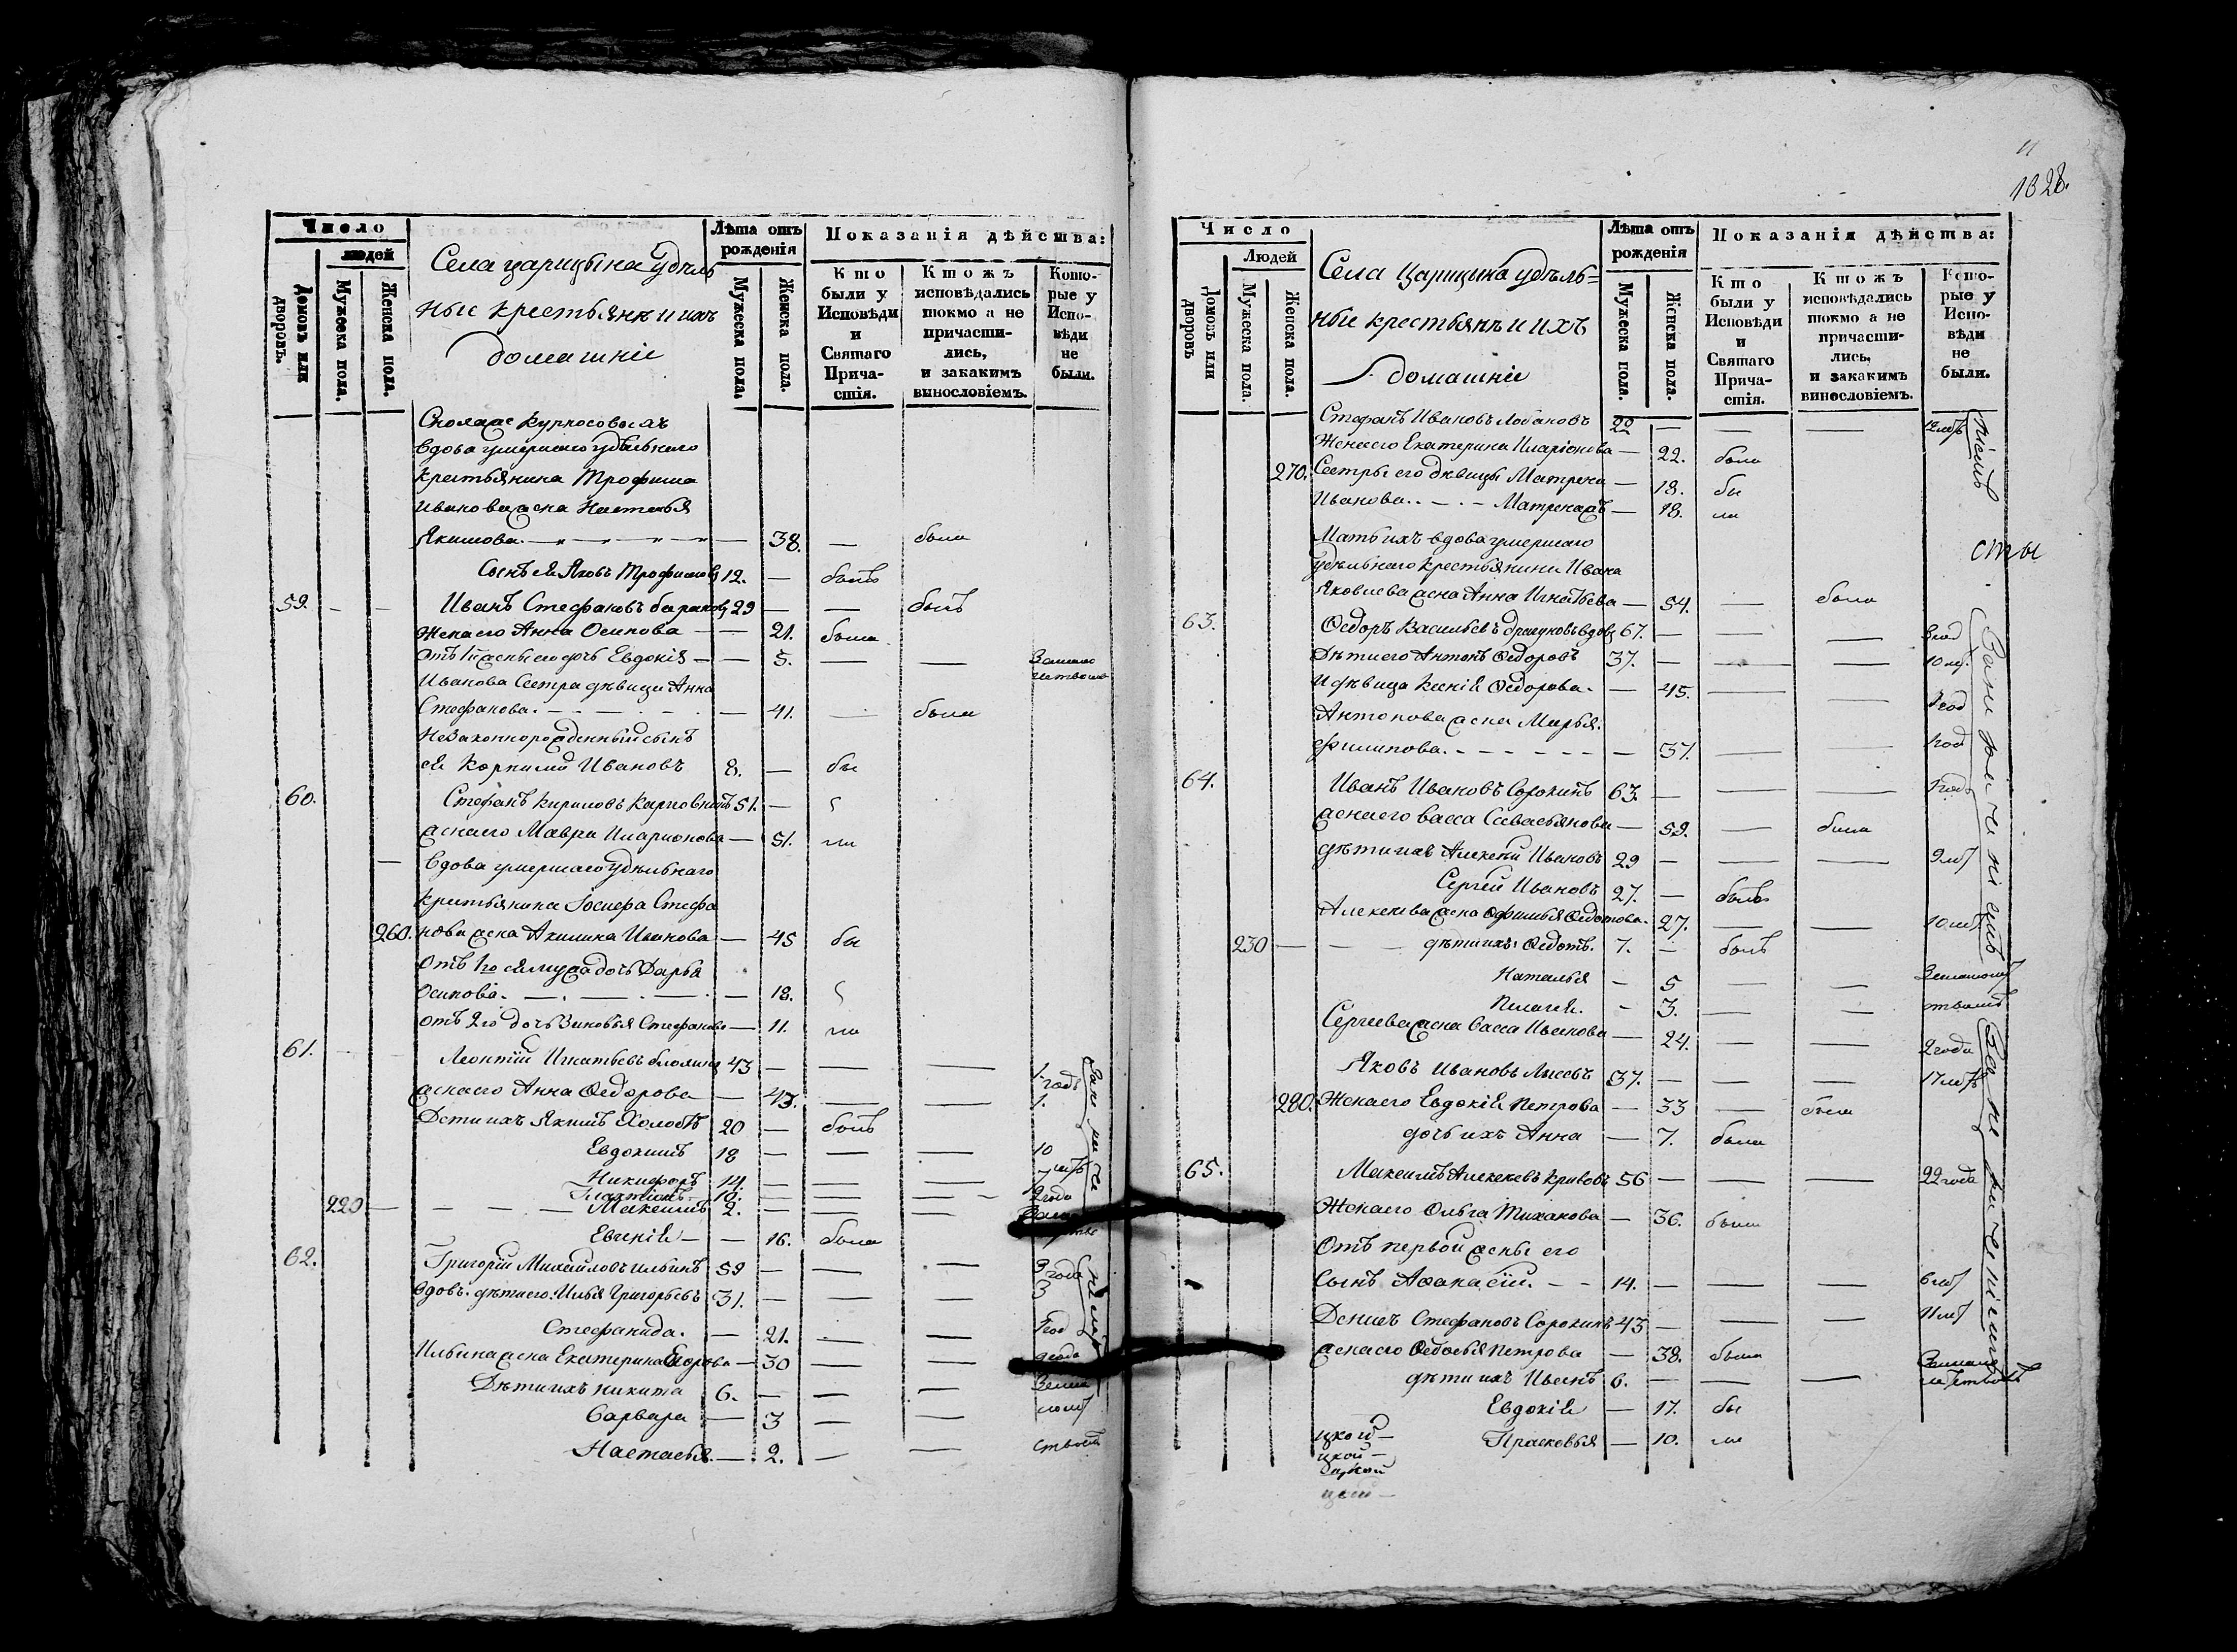 Число
людей
Домовъ или дворовъ.
Мужеска пола.
Женска пола.
Села царицына удѣль
ные крестьянѣ и ихъ
домашніе
Лѣта отъ рожденія
Мужеска пола.
Женска пола.
Показанія дѣйства:
Кто были у Исповѣди и Святаго Причастія.
Ктожъ исповѣдались токмо а не причастились, и закакимъ винословіемъ.
Которые у Исповѣди не были.
вдова умершаго удѣльнаго
крестьянина Трофима
Иванова жена Настасья
Якимова. — 38. — была
Сынъ ея Яковъ Трофимовъ 12. — былъ
59. Иванъ Стефановъ 29 — — былъ
Жена его Анна Осипова — 21. была
Отъ 1й жены его дочь Евдокія — 5. — —
Иванова Сестра дѣвица Анна
Стефанова. — 41. — была
Незаконнорожденный сынъ
ея Корнилий Ивановъ 8. — бы
60. Стефанъ Кириловъ 51. —
жена его Мавра Иларионова — 51. ли
Вдова умершаго удѣльнаго
крестьянина Іосифа Стефа
260. нова жена Акилина Иванова — 45 бы
Отъ 1го ея мужа дочь Дарья
Осипова. — 18.
отъ 2го дочь Зиновья Стефанова — 11. ли
61. Леонтій Игнатьевъ 43 — — — 1 годъ
жена его Анна Ѳедорова — 43. — — 1.
Дети ихъ Якимъ 20 — былъ
Евдокимъ 18 — — — 10
Никифоръ 14. — — — 7 лѣтъ
10. — — — 2 года
220 — Максимъ 2. — — —
Евгенія — 16. была
62. Григорій Михайловъ Ильинъ 59 — — — 3 года
вдовъ. дѣти его: Илья Григорьевъ 31. — — — 3
Стефанида. — 21. — — 1 год
Ильина жена Екатерина Егорова — 30 — —
Дѣти ихъ Никита 6. — — —
Варвара — 3 — —
Настасья. — 2. — —
11
1828.
Число
Людей
Домовъ или дворовъ
Мужеска пола.
Женска пола.
Села Царицына удѣль=
ные крестьянѣ и ихъ
домашніе
Лѣта отъ рожденія
Мужеска пола.
Женска пола.
Показанія дѣйства:
Кто были у Исповѣди и Святаго Причастія.
Ктожъ исповѣдались токмо а не причастились, и закакимъ винословіемъ.
Которые у Исповѣди не были.
Стефанъ Ивановъ Лобановъ 22 — — — 12 лѣтъ
Жена его Екатерина Иларіонова — 22. была
270. Сестры его дѣвицы Матрена — 18. бы
Иванова — 18. ли
Мать ихъ вдова умершаго
удѣльнаго крестьянина Ивана
Яковлева жена Анна Игнатьева — 54. — была
сты
63. Ѳедоръ Васильевъ вдовъ 67. — — —
Дѣти его Антонъ Ѳедоровъ 37. — — — 10 лѣ.
И дѣвица Ксенія Ѳедорова. — 45. — —
Антонова жена Марья
Филипова. — 37. — — 1 год
64. Иванъ Ивановъ Сорокинъ 63. — — — 1 годъ
жена его Васса Савастьянова — 59. — была
дѣти ихъ Алексѣй Ивановъ 29 — — — 9 лѣт
Сергѣй Ивановъ 27. — былъ
Алексѣева жена Офимья Ѳедотова. 27. — — 10 лѣт
230 — дѣти ихъ: Ѳедотъ. 7. — былъ
Наталья — 5 — —
Пелагея. — 3. — —
Сергѣева жена Васса Иванова — 24. — — 2 года
Яковъ Ивановъ 37. — — — 17 лѣтъ
280. Жена его Евдокія Петрова — 33 — была
дочь ихъ Анна — 7. была
65. Максимъ Алексѣевъ Кривовъ 56 — — — 22 года
Жена его Ольга — 36. была
Отъ первой жены его
Сынъ Аѳанасій. — 14. — — — 6 лѣт
Денисъ Стефановъ Сорокинъ 43 — — — 11 лѣт
жена его Ѳедосья Петрова — 38. была
дѣти ихъ Иванъ 6. — — —
Евдокія — 17. бы
Прасковья — 10. ли